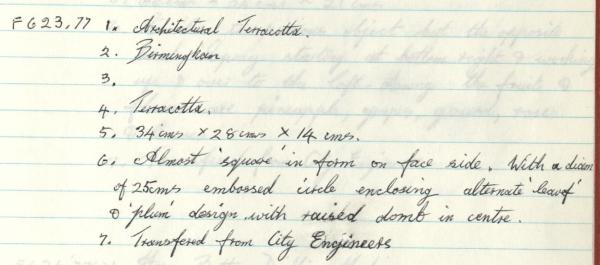 F623.77 1. Architectural Terracotta.
2. Birmingham
3.
4. Terracotta.
5. 34cms × 28cms × 14 cms.
6. Almost 'square' in form on face side. With a diam
of 25cms embossed circle enclosing alternate 'leaf'
& 'plum' design with raised domb in centre.
7. Transfered from City Engineers